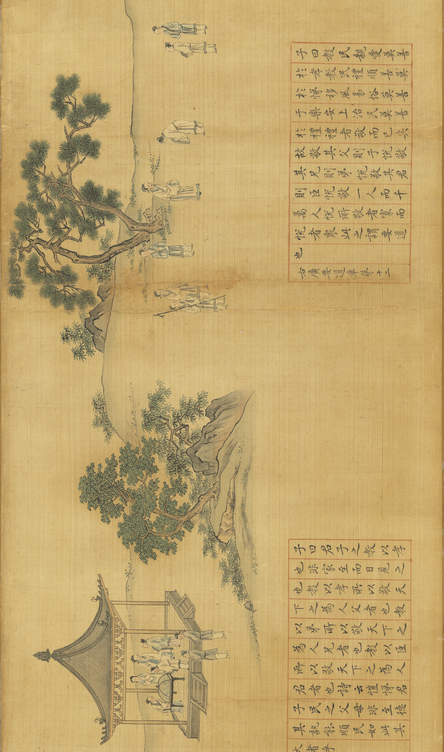 子曰教民親愛莫善
於孝教民禮順莫善
於悌移風易俗莫善
于樂安上治民莫善
於禮禮者敬而已矣
故敬其父則子悅敬
其兄則弟悅敬其君
則臣悅敬一人而千
萬人悅所敬者寡而
悅者衆此之謂要道
也
右廣要道章第十二
子曰君子之教以孝
也非家至而日見之
也教以孝所以敬天
下之為人父者也教
以弟所以敬天下之
為人兄者也教以臣
所以敬天下之為人
君者也詩云愷悌君
子民之父母非至德
其孰能順民如此其
大者乎